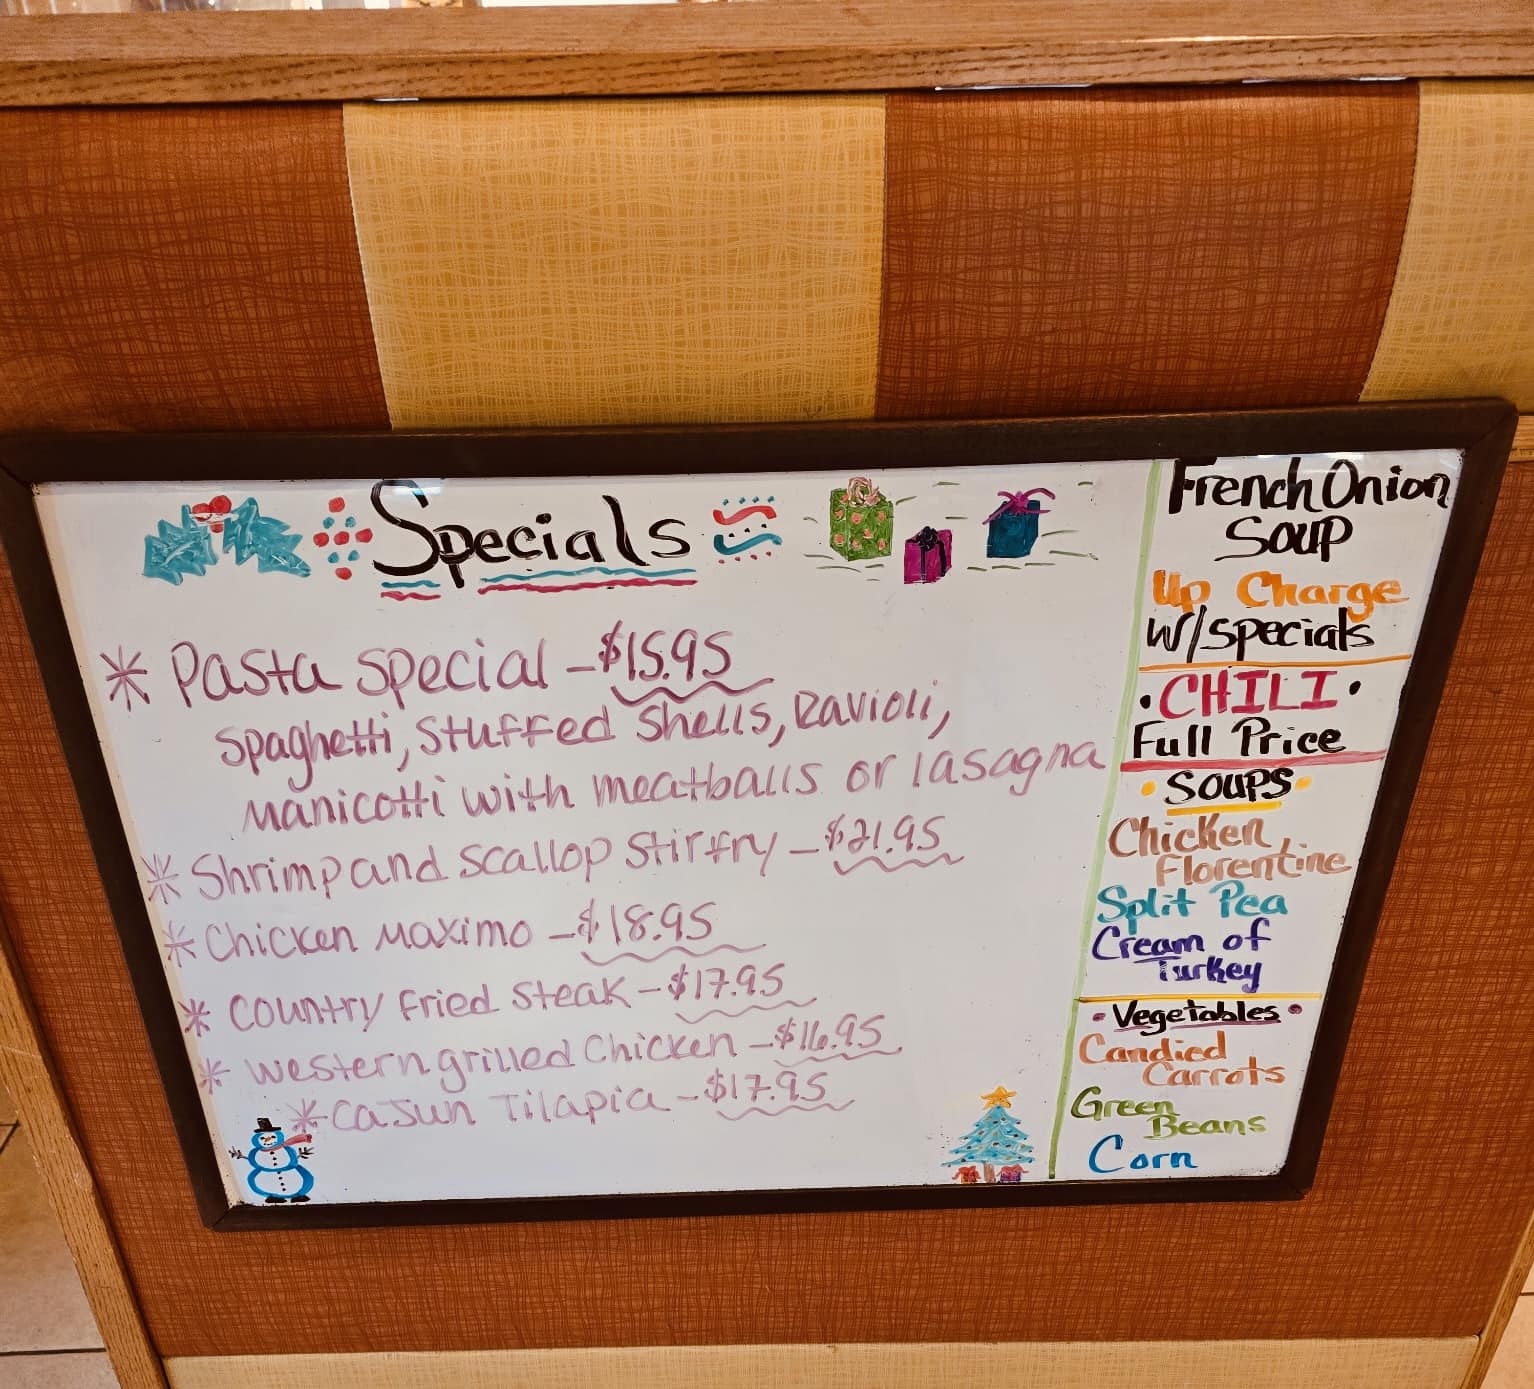 Specials
* Pasta Special - $15.95
Spaghetti, Stuffed Shells, Ravioli,
Manicotti with meatballs or lasagna
* Shrimp and scallop Stirfry - $21.95
* Chicken Maximo - $18.95
* Country fried Steak - $17.95
* Western grilled Chicken - $16.95
* Cajun Tilapia - $17.95
French Onion
Soup
Up Charge
W/specials
• CHILI •
Full Price
• Soups •
Chicken
Florentine
Split Pea
Cream of
Turkey
• Vegetables •
Candied
Carrots
Green
Beans
Corn